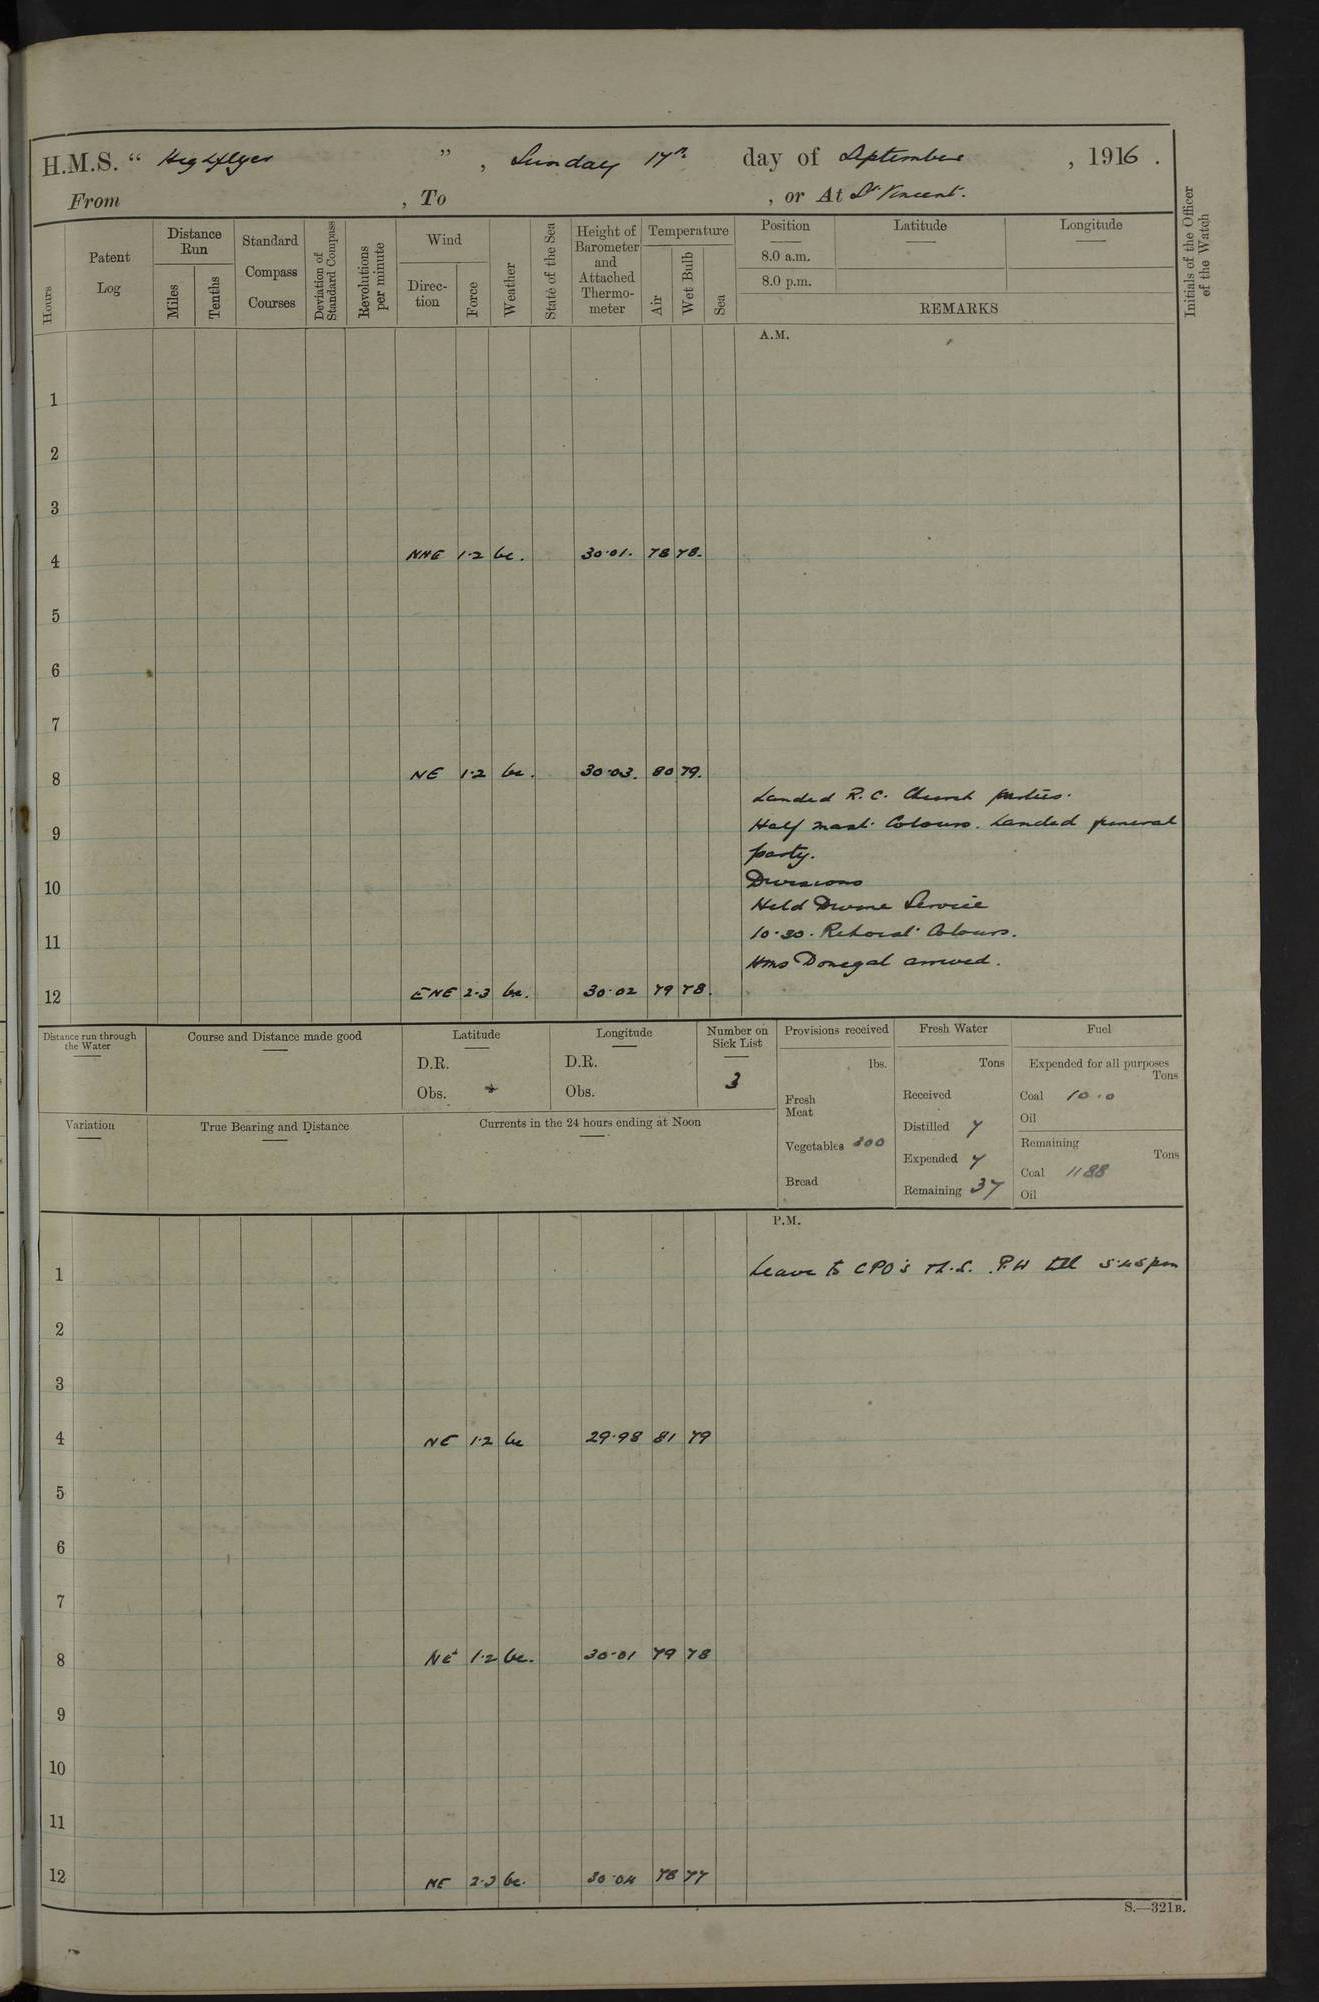 H.M.S. “ Highflyer ” , Sunday 17th. day of September , 1916 .
From , To , or At St Vincent.
Hours
Patent Log
Distance Run
Miles
Tenths
Standard Compass Courses
Deviation of Standard Compass
Revolutions per minute
Wind
Direc- tion
Force
Weather
State of the Sea
Height of Barometer and Attached Thermo- meter
Temperature
Air
Wet Bulb
Sea
Position
8.0 a.m.
8.0 p.m.
Latitude
Longitude
REMARKS
Initials of the Officer of the Watch
A.M.
1
2
3
4 NNE 1·2 bc. 30·01. 78 78.
5
6
7
8 NE 1·2 bc. 30·03. 80 79.
Landed R. C. Church parties.
9 Half mast Colours. Landed funeral
party.
10 Divisions
Held Divine Service
11 10·30. Rehoist Colours.
HMS Donegal arrived.
12 ENE 2·3 bc. 30·02 79 78.
Distance run through the Water
Course and Distance made good
Latitude
D.R.
Obs.
Longitude
D.R.
Obs.
Number on Sick List
3
Provisions received
lbs.
Fresh Meat
Vegetables 300
Bread
Fresh Water
Tons
Received
Distilled 7
Expended 7
Remaining 37
Fuel
Expended for all purposes
Tons
Coal 10·0
Oil
Remaining
Tons
Coal 1188
Oil
Variation
True Bearing and Distance
Currents in the 24 hours ending at Noon
P.M.
1 Leave to CPO's till 5·45pm
2
3
4 NE 1·2 bc 29·98 81 79
5
6
7
8 NE 1·2 bc. 30·01 79 78
9
10
11
12 NE 2·3 bc. 30·04 78 77
S.—321B.